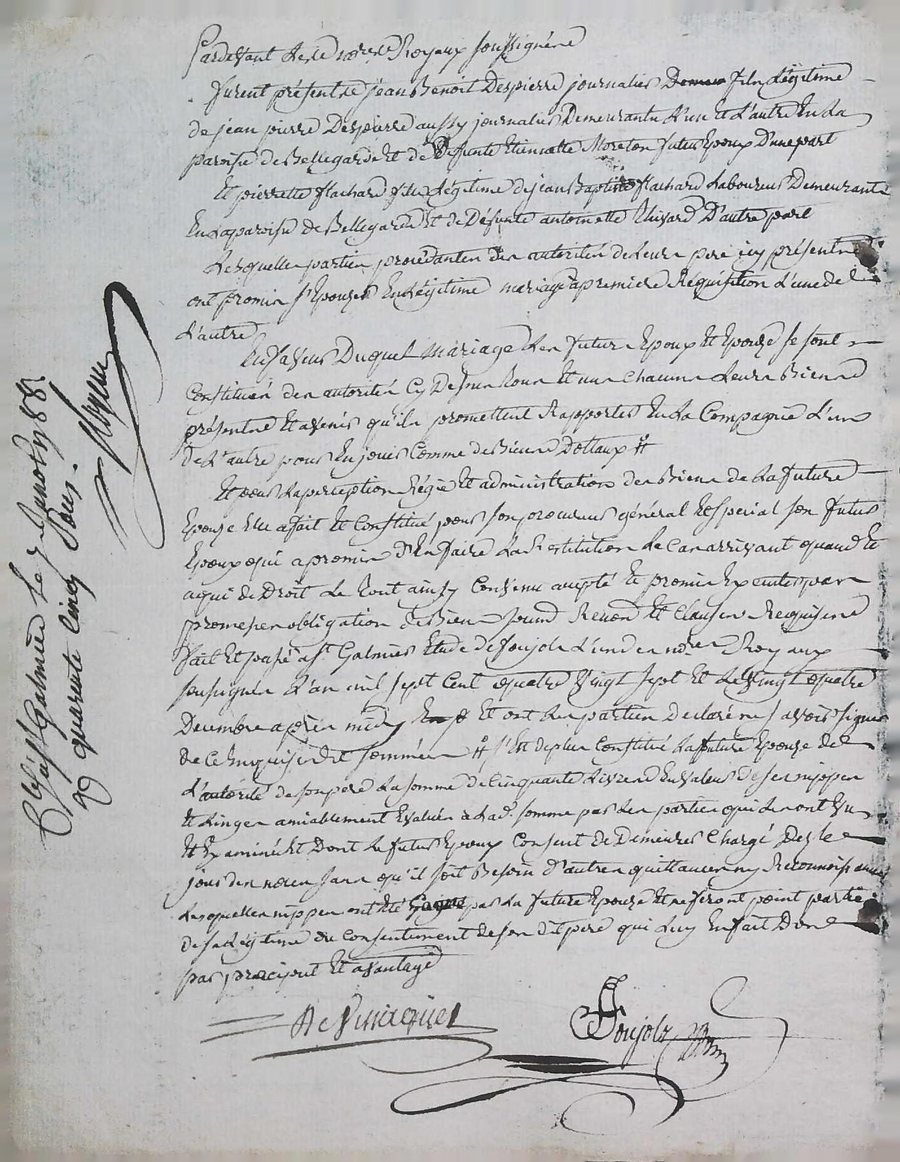 Pardevant les no.res Royaux soussignés
Furent présents jean Benoit Despierre journalier fils légitime
de jean pierre Despierre aussy journalier Demeurants L'un et L'autre En La
paroisse de Bellegarde et de Défunte Etiennette Moreton futur Epoux D'une part
Et pierrette flachard fille Légitime de jean Baptiste flachard Laboureur Demeurants
En La paroisse de Bellegarde Et de Défunte antoinette D'autre part
Lesquelles parties procedantes des autorités de Leurs pere icy présents
ont promis s'Epouser En Légitime mariage a premiere Réquisition L'une de
L'autre
En faveur Duquel Mariage Les futurs Epoux Et Epouse se sont
Constitués des autorités Cy Dessus tous Et uns Chacuns Leurs Biens
présents Et avenir qu'ils promettent Rapporter En La Compagnie L'un
de L'autre pour En jouir Comme de Biens Dotaux
Et pour La perception Régie Et administration des Biens de La future
Epouse Elle a fait Et Constitué pour son procureur général Et special son futur
Epoux qui a promis D'En faire La Restitution Le Cas arrivant quand Et
a qui de Droit Le tout ainsy Convenu accepté Et promis Executer par
promesses obligation de Biens soumd. Renond. Et Clauses Requises
fait Et passé a St. Galmier Etude de Soujols L'un des no.res Royaux
soussignés L'an mil sept Cent quatre Vingt sept Et Le Vingt quatre
Decembre après midy Et ont Les parties Déclaré ne savoir signer
de Ce Enquises Et sommées S'Est de plus Constitué La future Epouse de
L'autorité de son pere La somme de Cinquante Livres En valeur de ses nippes
Et Linges amiablement Evalués a Lad. somme par Les parties qui Les ont Vu
Et Examiné Et Dont Le futur Epoux Consent de Demeurer Chargé Dès Le
jour des noces sans qu'il soit Besoin d'autres quittances ny Reconnoissances
Lesquelles nippes ont été par La future Epouse Et ne feront point parties
de sa Légitime du Consentement de son dit pere qui Luy En fait Don
par préciput Et avantage
Soujols
Clé a St Galmier Le 7 janvier 1788
quarante Cinq sous